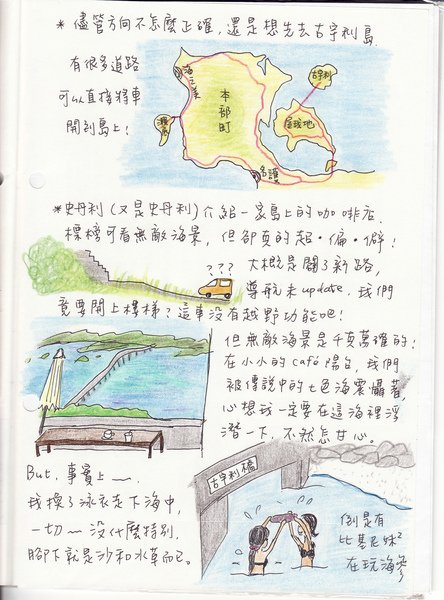 * 儘管方向不怎麼正確,還是想先去古宇利島
有很多道路
可以直接將車
開到島上!
海之美
本部町
瀨底
名護
古宇利
屋我地
* 史丹利(又是史丹利)介紹一家島上的咖啡店.
標榜可看無敵海景,但卻真的超·偏·僻!
大概是開了新路,
導航未update,我們
???
竟要開上樓梯?這車沒有越野功能吧!
但無敵海景是千真萬確的!
在小小的café陽台,我們
被傳說中的七色海震懾著
心想我一定要在這海裡浮
潛一下,不然怎甘心。
But,事實上~~,
我換了泳衣走下海中,
一切~沒什麼特別,
腳下就是沙和水草而已。
古宇利橋
倒是有
比基尼妹²
在玩海參